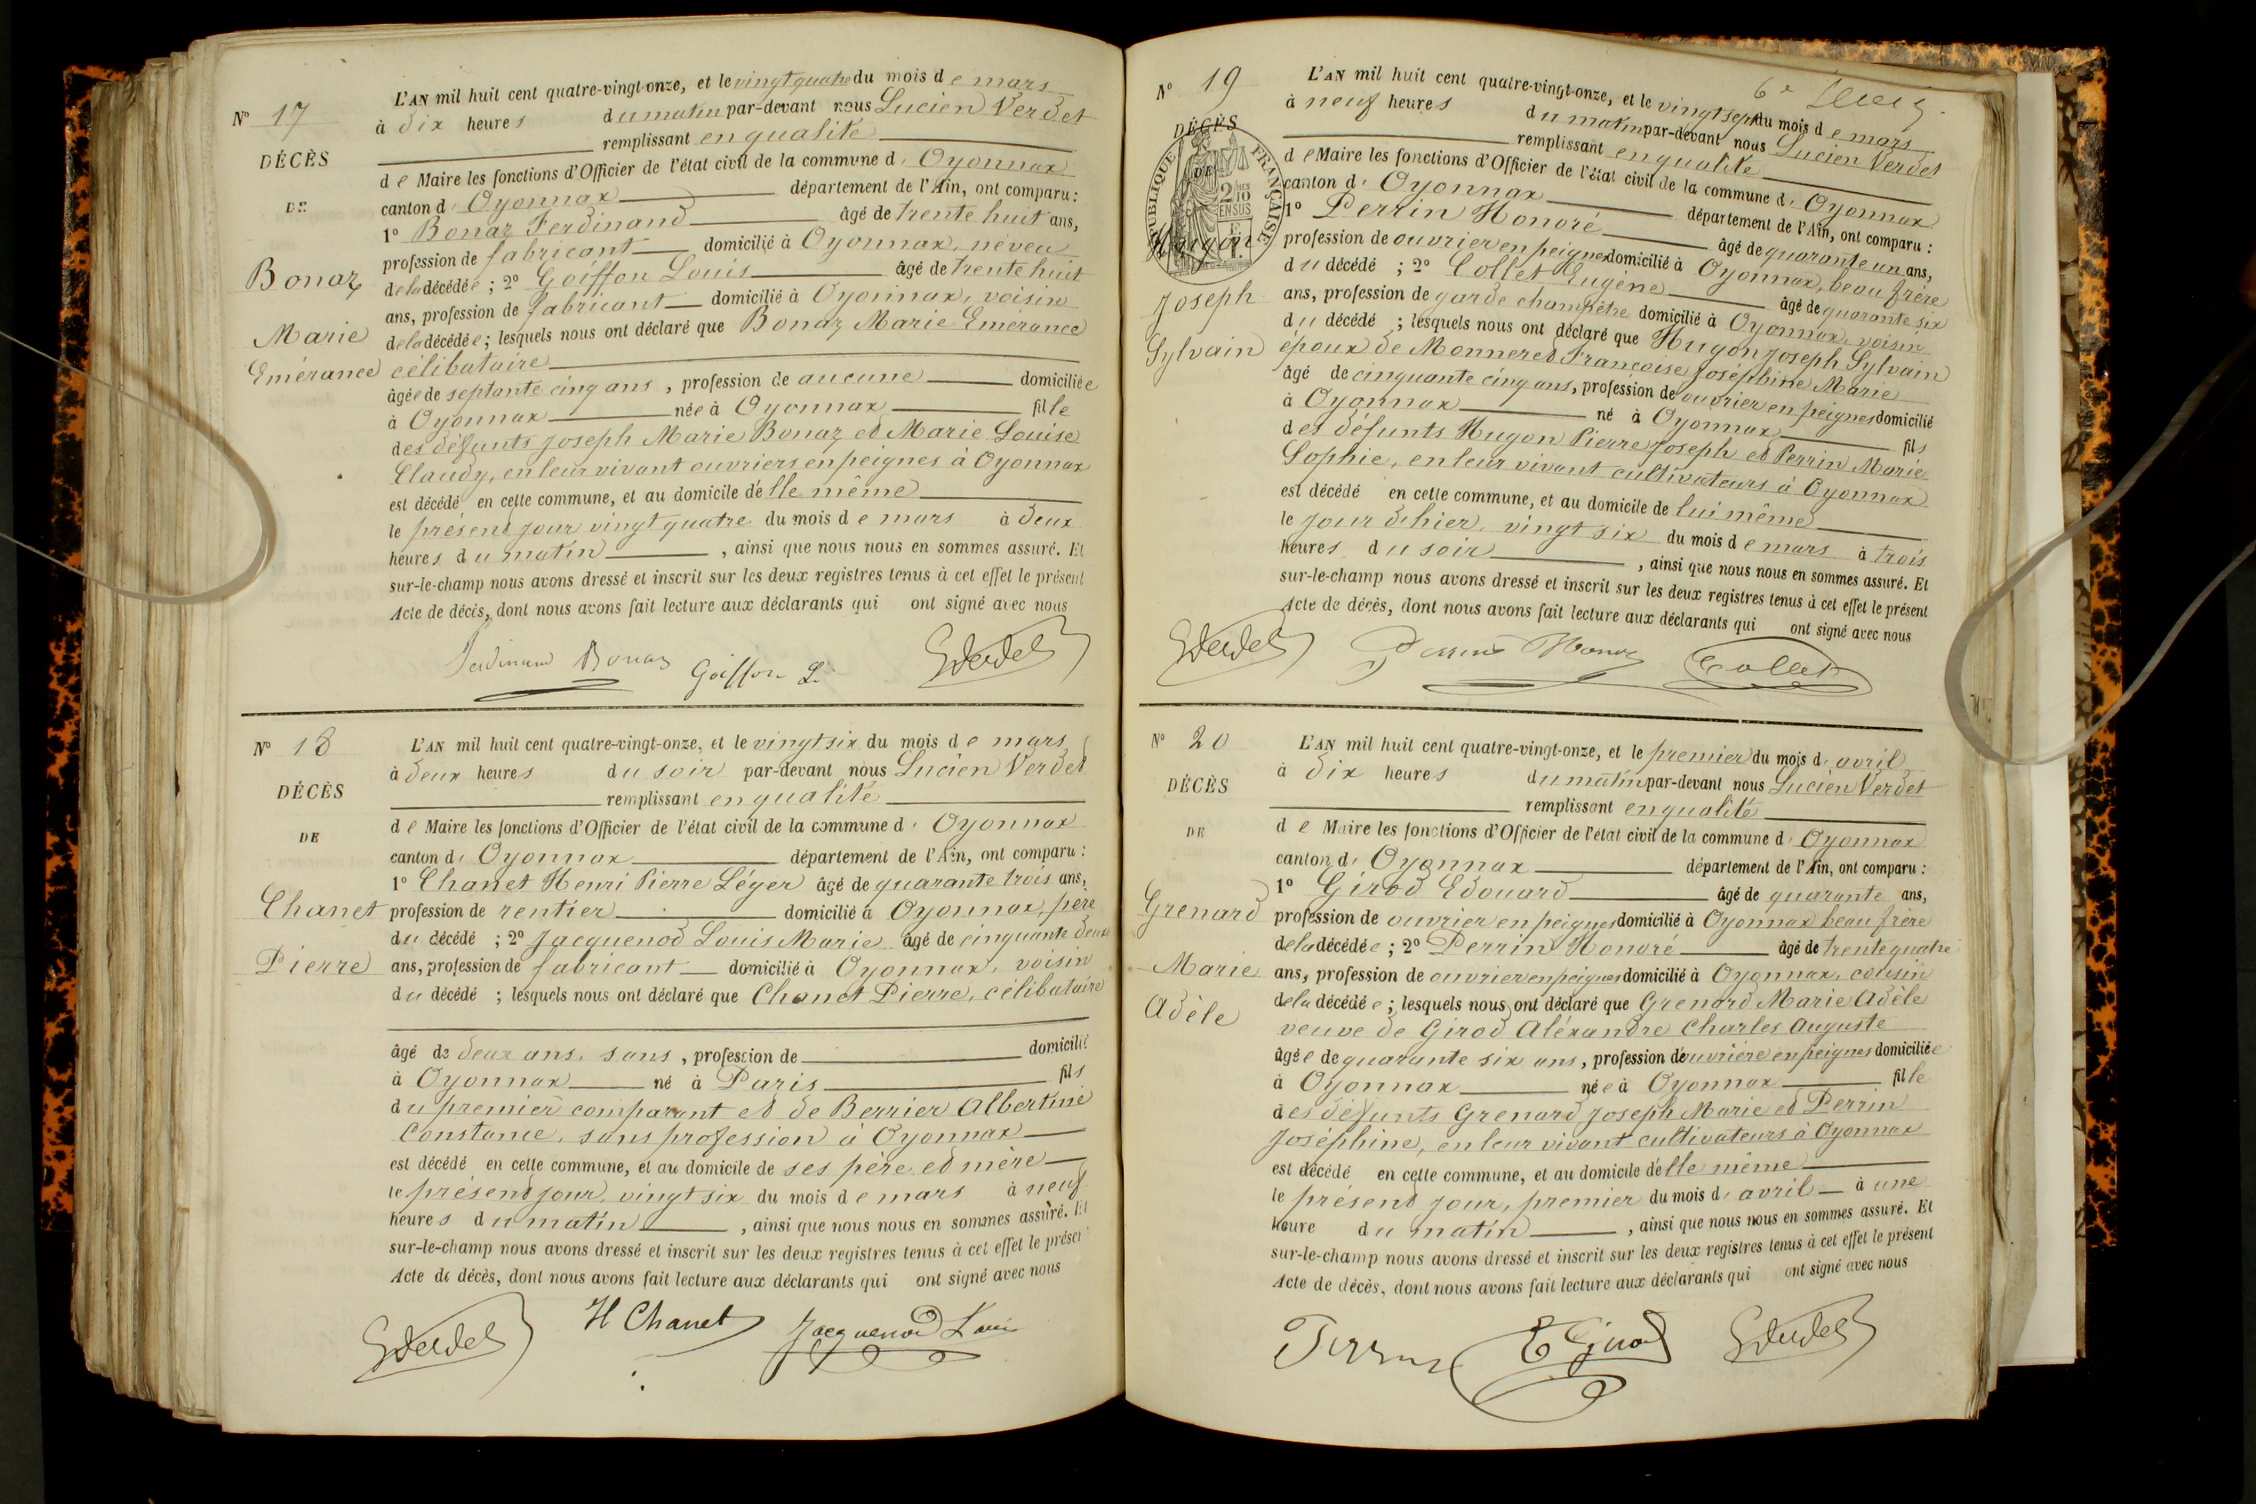 N° 17
DÉCÈS
DE
Bonaz
Marie
Emérance
L'AN mil huit cent quatre-vingt-onze, et le vingt quatre du mois de mars
à dix heures du matin par-devant nous Lucien Verdet
remplissant en qualité
de Maire les fonctions d'Officier de l'état civil de la commune d' Oyonnax
canton d' Oyonnax département de l'Ain, ont comparu :
1° Bonaz Ferdinand âgé de trente huit ans,
profession de fabricant domicilié à Oyonnax, neveu
de la décédée ; 2° Goiffon Louis âgé de trente huit
ans, profession de fabricant domicilié à Oyonnax, voisin
de la décédée ; lesquels nous ont déclaré que Bonaz Marie Emérance
célibataire
âgée de septante cinq ans, profession de aucune domiciliée
à Oyonnax née à Oyonnax fille
des défunts Joseph Marie Bonaz et Marie Louise
Claudy, en leur vivant ouvriers en peignes à Oyonnax
est décédé en cette commune, et au domicile d'elle même
le présent jour vingt quatre du mois de mars à deux
heures du matin, ainsi que nous nous en sommes assuré. Et
sur-le-champ nous avons dressé et inscrit sur les deux registres tenus à cet effet le présent
Acte de décès, dont nous avons fait lecture aux déclarants qui ont signé avec nous
Ferdinand Bonaz Goiffon L. Verdet
N° 18
DÉCÈS
DE
Chanet
Pierre
L'AN mil huit cent quatre-vingt-onze, et le vingt six du mois de mars
à deux heures du soir par-devant nous Lucien Verdet
remplissant en qualité
de Maire les fonctions d'Officier de l'état civil de la commune d' Oyonnax
canton d' Oyonnax département de l'Ain, ont comparu :
1° Chanet Henri Pierre Léger âgé de quarante trois ans,
profession de rentier domicilié à Oyonnax, père
du décédé ; 2° Jacquenod Louis Marie âgé de cinquante deux
ans, profession de fabricant domicilié à Oyonnax, voisin
du décédé ; lesquels nous ont déclaré que Chanet Pierre, célibataire
âgé de deux ans, sans, profession de domicilié
à Oyonnax né à Paris fils
du premier comparant et de Berrier Albertine
Constance, sans profession à Oyonnax
est décédé en cette commune, et au domicile de ses père et mère
le présent jour, vingt six du mois de mars à neuf
heures du matin, ainsi que nous nous en sommes assuré. Et
sur-le-champ nous avons dressé et inscrit sur les deux registres tenus à cet effet le présent
Acte de décès, dont nous avons fait lecture aux déclarants qui ont signé avec nous
Verdet H Chanet Jacquenod Louis
6e
N° 19
DÉCÈS
DE
RÉPUBLIQUE FRANÇAISE
Hugon
Joseph
Sylvain
L'AN mil huit cent quatre-vingt-onze, et le vingt sept du mois de mars
à neuf heures du matin par-devant nous Lucien Verdet
remplissant en qualité
de Maire les fonctions d'Officier de l'état civil de la commune d' Oyonnax
canton d' Oyonnax département de l'Ain, ont comparu :
1° Perrin Honoré âgé de quarante un ans,
profession de ouvrier en peignes domicilié à Oyonnax, beau frère
du décédé ; 2° Collet Eugène âgé de quarante six
ans, profession de garde champêtre domicilié à Oyonnax, voisin
du décédé ; lesquels nous ont déclaré que Hugon Joseph Sylvain
époux de Monneret Françoise Joséphine Marie
âgé de cinquante cinq ans, profession de ouvrier en peignes domicilié
à Oyonnax né à Oyonnax fils
des défunts Hugon Pierre Joseph et Perrin Marie
Sophie, en leur vivant cultivateurs à Oyonnax
est décédé en cette commune, et au domicile de lui même
le jour d'hier, vingt six du mois de mars à trois
heures du soir, ainsi que nous nous en sommes assuré. Et
sur-le-champ nous avons dressé et inscrit sur les deux registres tenus à cet effet le présent
Acte de décès, dont nous avons fait lecture aux déclarants qui ont signé avec nous
Verdet Perrin Honoré Collet
N° 20
DÉCÈS
DE
Grenard
Marie
Adèle
L'AN mil huit cent quatre-vingt-onze, et le premier du mois d' avril
à dix heures du matin par-devant nous Lucien Verdet
remplissant en qualité
de Maire les fonctions d'Officier de l'état civil de la commune d' Oyonnax
canton d' Oyonnax département de l'Ain, ont comparu :
1° Girod Edouard âgé de quarante ans,
profession de ouvrier en peignes domicilié à Oyonnax beau frère
de la décédée ; 2° Perrin Honoré âgé de trente quatre
ans, profession de ouvrier en peignes domicilié à Oyonnax, cousin
de la décédée ; lesquels nous ont déclaré que Grenard Marie Adèle
veuve de Girod Aléxandre Charles Auguste
âgée de quarante six ans, profession d'ouvrière en peignes domiciliée
à Oyonnax née à Oyonnax fille
des défunts Grenard Joseph Marie et Perrin
Joséphine, en leur vivant cultivateurs à Oyonnax
est décédé en cette commune, et au domicile d'elle même
le présent jour, premier du mois d' avril à une
heure du matin, ainsi que nous nous en sommes assuré. Et
sur-le-champ nous avons dressé et inscrit sur les deux registres tenus à cet effet le présent
Acte de décès, dont nous avons fait lecture aux déclarants qui ont signé avec nous
Perrin E Girod Verdet